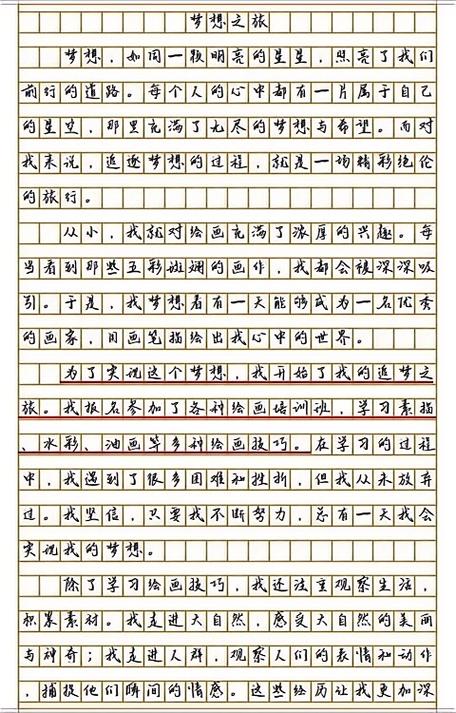 梦想之旅
梦想，如同一颗明亮的星星，照亮了我们
前行的道路。每个人的心中都有一片属于自己
的星空，那里充满了无尽的梦想与希望。而对
我来说，追逐梦想的过程，就是一场精彩绝伦
的旅行。
从小，我就对绘画充满了浓厚的兴趣。每
当看到那些五彩斑斓的画作，我都会被深深吸
引。于是，我梦想着有一天能够成为一名优秀
的画家，用画笔描绘出我心中的世界。
为了实现这个梦想，我开始了我的追梦之
旅。我报名参加了各种绘画培训班，学习素描
、水彩、油画等多种绘画技巧。在学习的过程
中，我遇到了很多困难和挫折，但我从未放弃
过。我坚信，只要我不断努力，总有一天我会
实现我的梦想。
除了学习绘画技巧，我还注重观察生活，
积累素材。我走进大自然，感受大自然的美丽
与神奇；我走进人群，观察人们的表情和动作
，捕捉他们瞬间的情感。这些经历让我更加深